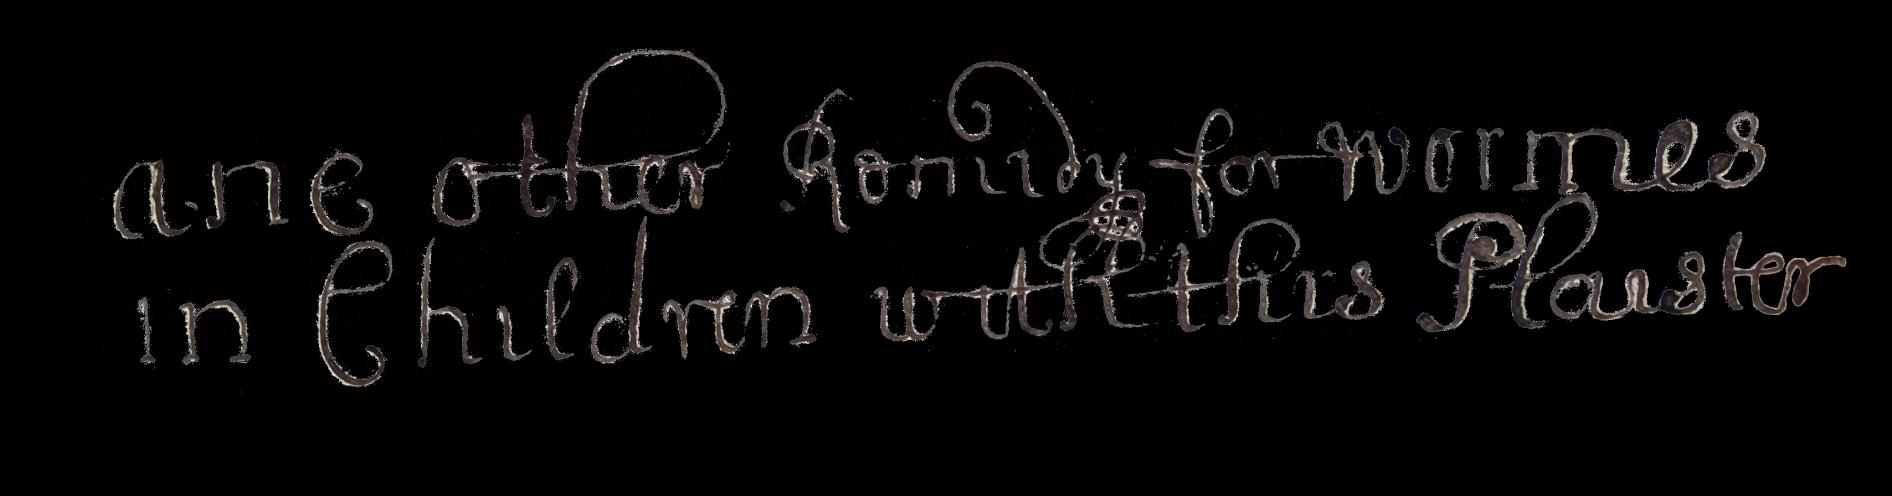 ane other Romidy for wormes
in Children with this Plaister